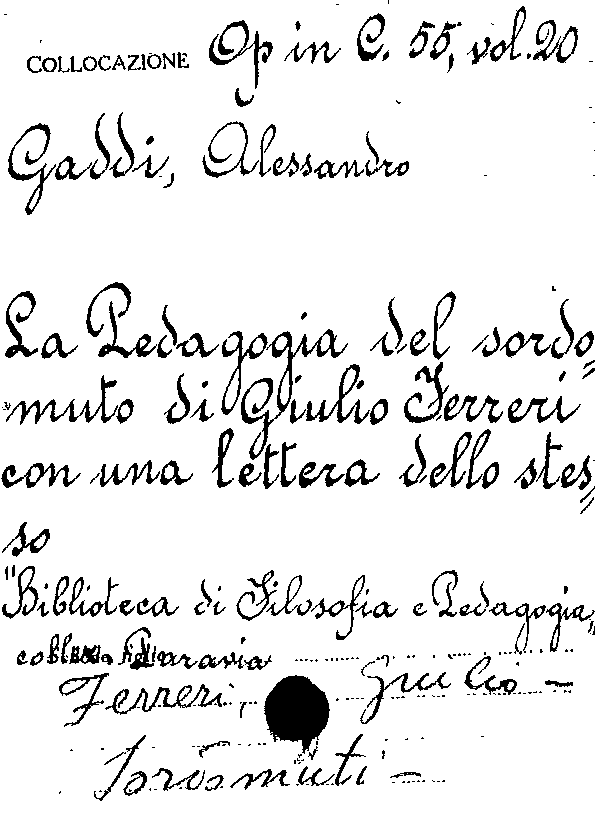 COLLOCAZIONE Op in C. 55, vol. 20
Gaddi, Alessandro
La Pedagogia del sordo=
muto di Giulio Ferreri
con una lettera dello stes=
so
"Biblioteca di Filosofia e Pedagogia,,
Paravia
Ferreri, Giulio -
Sordomuti -